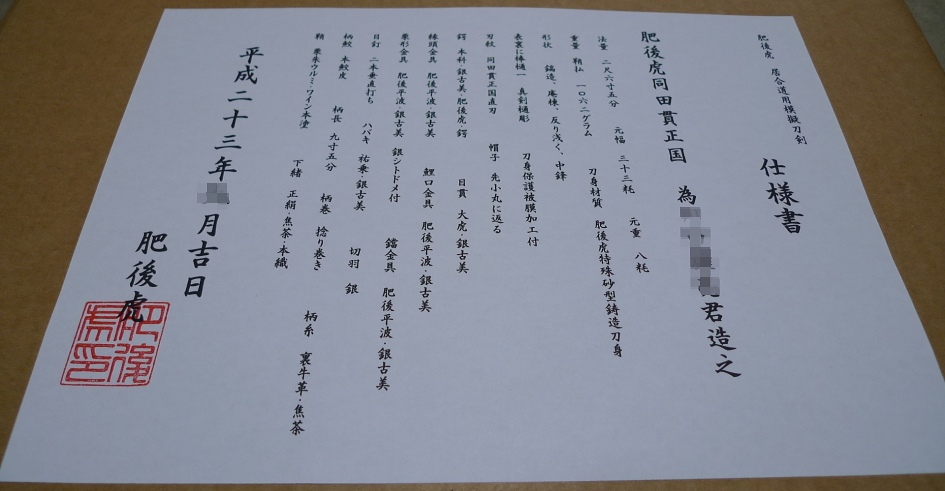 肥後虎 居合道用模擬刀剣
仕様書
肥後虎同田貫正国 為 君造之
法量 二尺六寸五分 元幅 三十三粍 元重 八粍
重量 鞘払 一〇六二グラム 刀身材質 肥後虎特殊砂型鋳造刀身
形状 鎬造、庵棟、反り浅く、中鋒
表裏に棒樋一 真剣樋彫 刀身保護被膜加工付
刃紋 同田貫正国直刃 帽子 先小丸に返る
鍔 本科銀古美・肥後虎鍔 目貫 大虎・銀古美
縁頭金具 肥後平波・銀古美 鯉口金具 肥後平波・銀古美
栗形金具 肥後平波・銀古美 銀シトドメ付 鐺金具 肥後平波・銀古美
目釘 二本垂直打ち ハバキ 祐乗・銀古美 切羽 銀
柄鮫 本鮫皮 柄長 九寸五分 柄巻 捻り巻き 柄糸 裏牛革・焦茶
鞘 栗朱ウルミ・ワイン本塗 下緒 正絹・焦茶・本織
平成二十三年 月吉日
肥後虎
肥後虎印